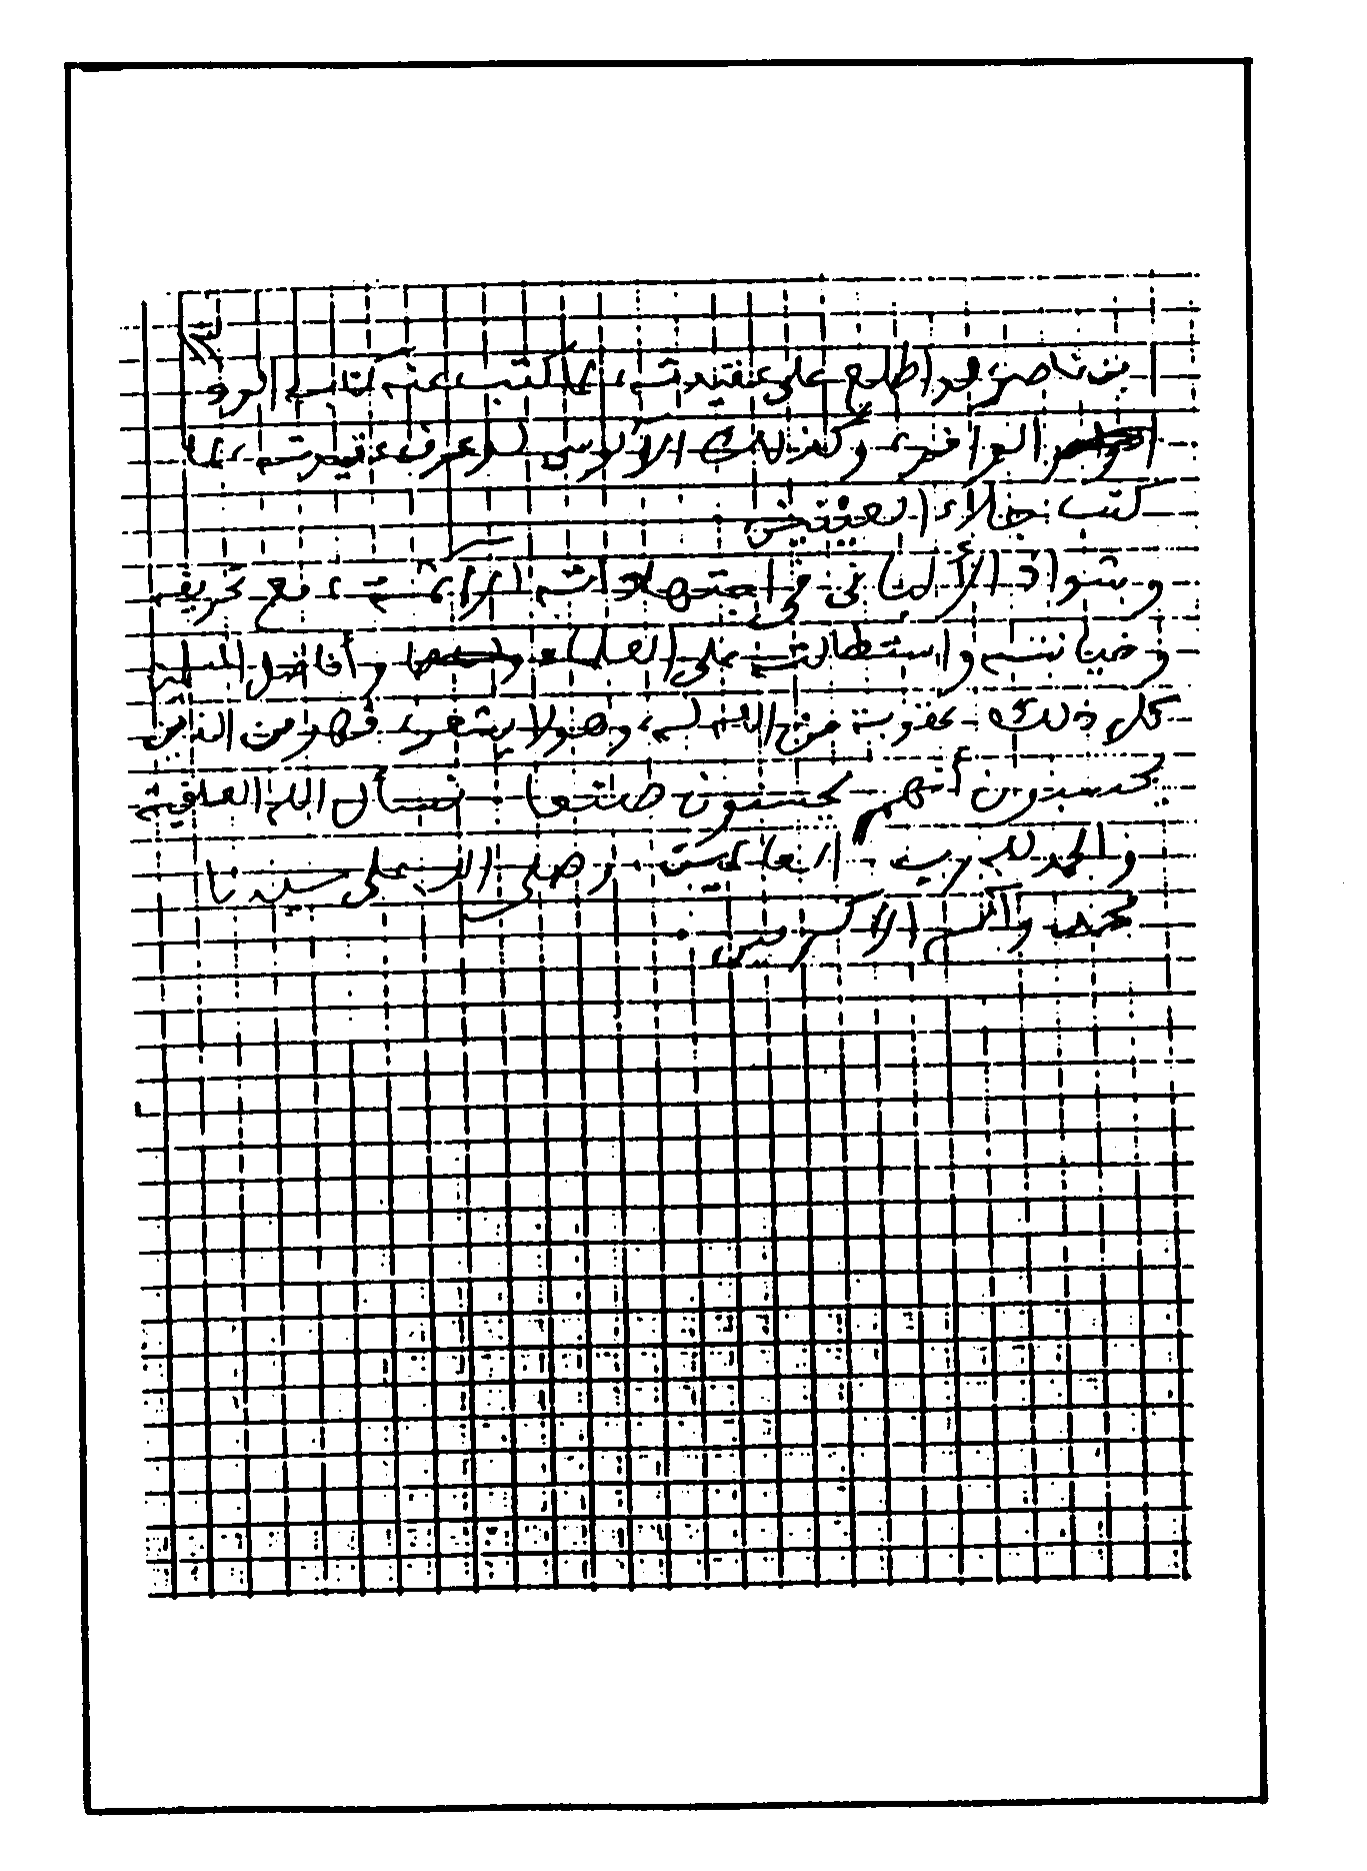 بن ناصر، لو اطلع على عقيدته، ما كتب عنه كتابه الرد
الوافر، وكذلك الألوسي لو عرف عقيدته، ما
كتب جلاء العينين
وشواذ الألباني في اجتهاداته الآثمة، مع تحريفه
وخيانته واستطالته على العلماء وأفاضل المسلمين
كل ذلك عقوبة من الله له، وهو لا يشعر، فهو من الذين
يحسبون أنهم يحسنون صنعا نسأل الله العافية
والحمد لله رب العالمين وصلى الله على سيدنا
محمد وآله الأكرمين.